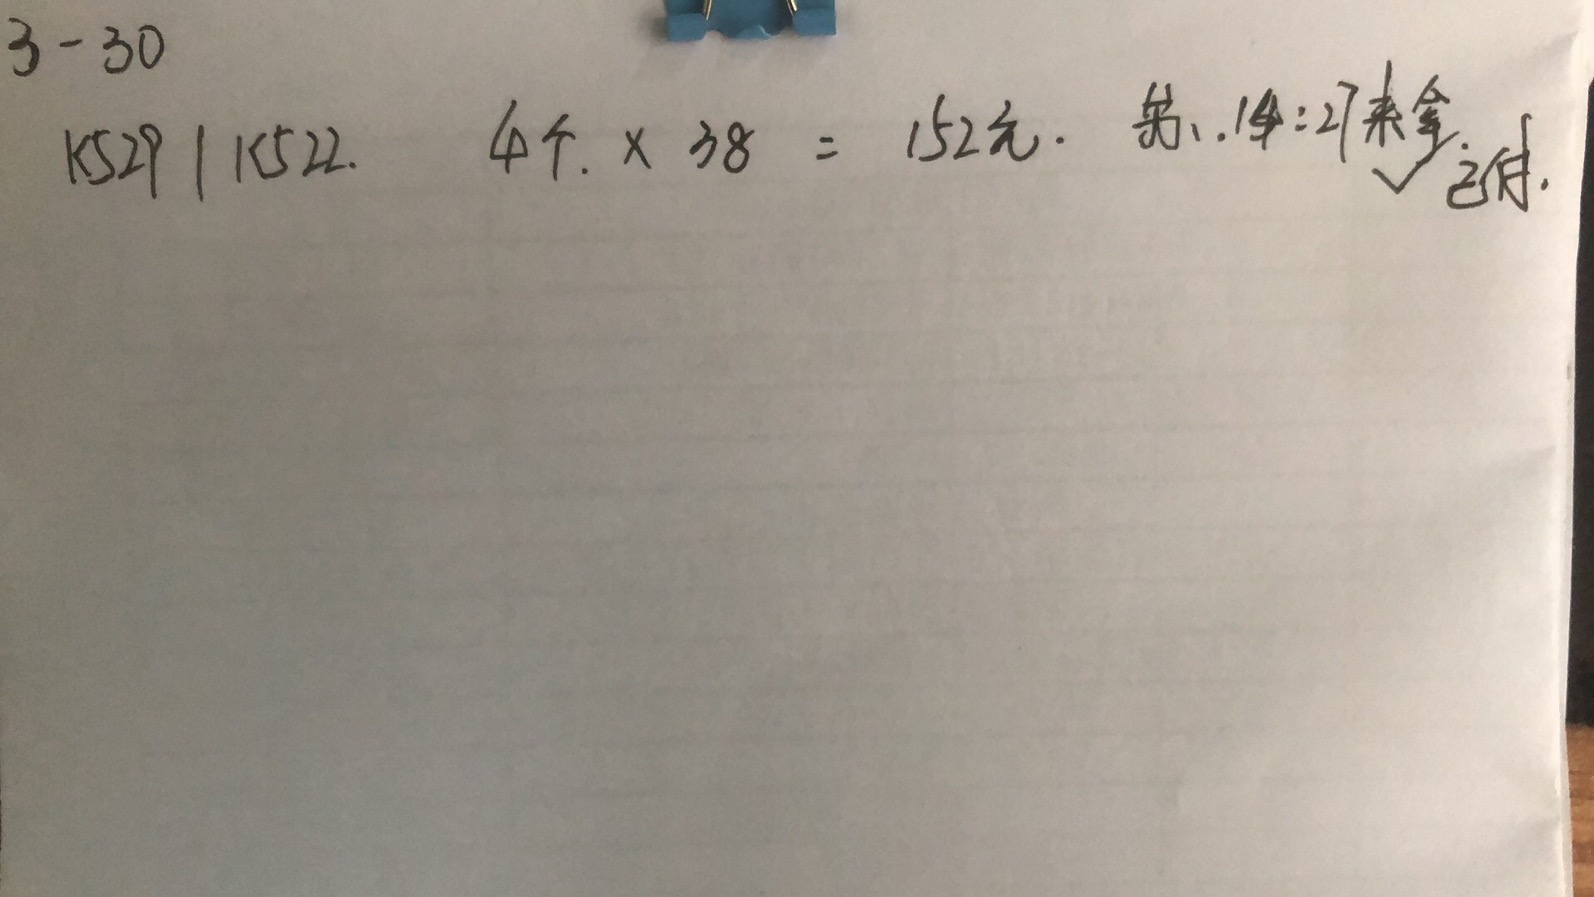 3-30
K529 | K522. 4个. × 38 = 152元. 14:27来拿. 已付.